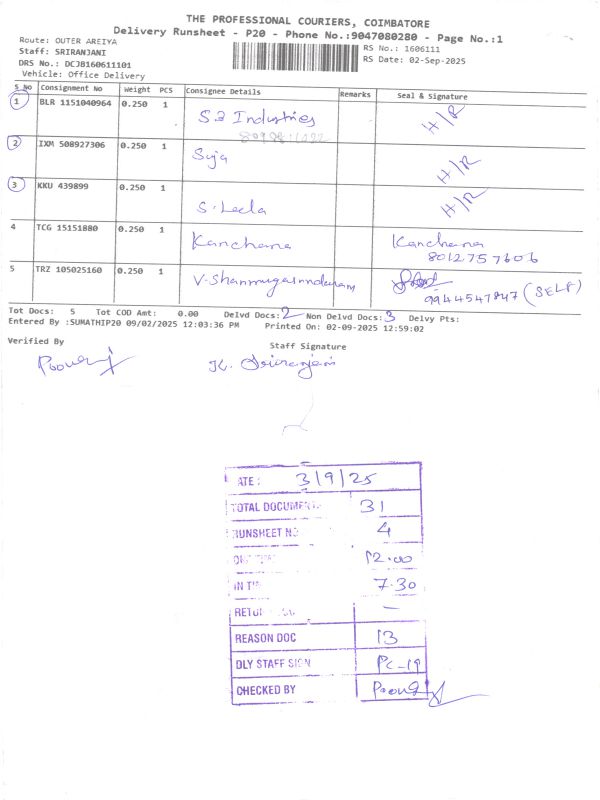 THE PROFESSIONAL COURIERS, COIMBATORE
Delivery Runsheet - P20 - Phone No.:9047080280 - Page No.:1
Route: OUTER AREIYA
RS No.: 1606111
Staff: SRIRANJANI
RS Date: 02-Sep-2025
DRS No.: DCJB160611101
Vehicle: Office Delivery
S No Consignment No Weight PCS Consignee Details Remarks Seal & Signature
1 BLR 1151040964 0.250 1 S.B Industries H/R
2 IXM 508927306 0.250 1 Suja H/R
3 KKU 439899 0.250 1 S. Leela H/R
4 TCG 15151880 0.250 1 Kanchana Kanchana
8012757606
5 TRZ 105025160 0.250 1 V. Shanmugasundaram
9944547847 (SELF)
Tot Docs: 5 Tot COD Amt: 0.00 Delvd Docs: 2 Non Delvd Docs: 3 Delvy Pts:
Entered By :SUMATHIP20 09/02/2025 12:03:36 PM Printed On: 02-09-2025 12:59:02
Verified By Staff Signature
K. Sriranjani
ATE : 3/9/25
TOTAL DOCUMEN 31
RUNSHEET NO 4
12.00
IN TI 7.30
RETU –
REASON DOC 13
DLY STAFF SIGN PC-19
CHECKED BY